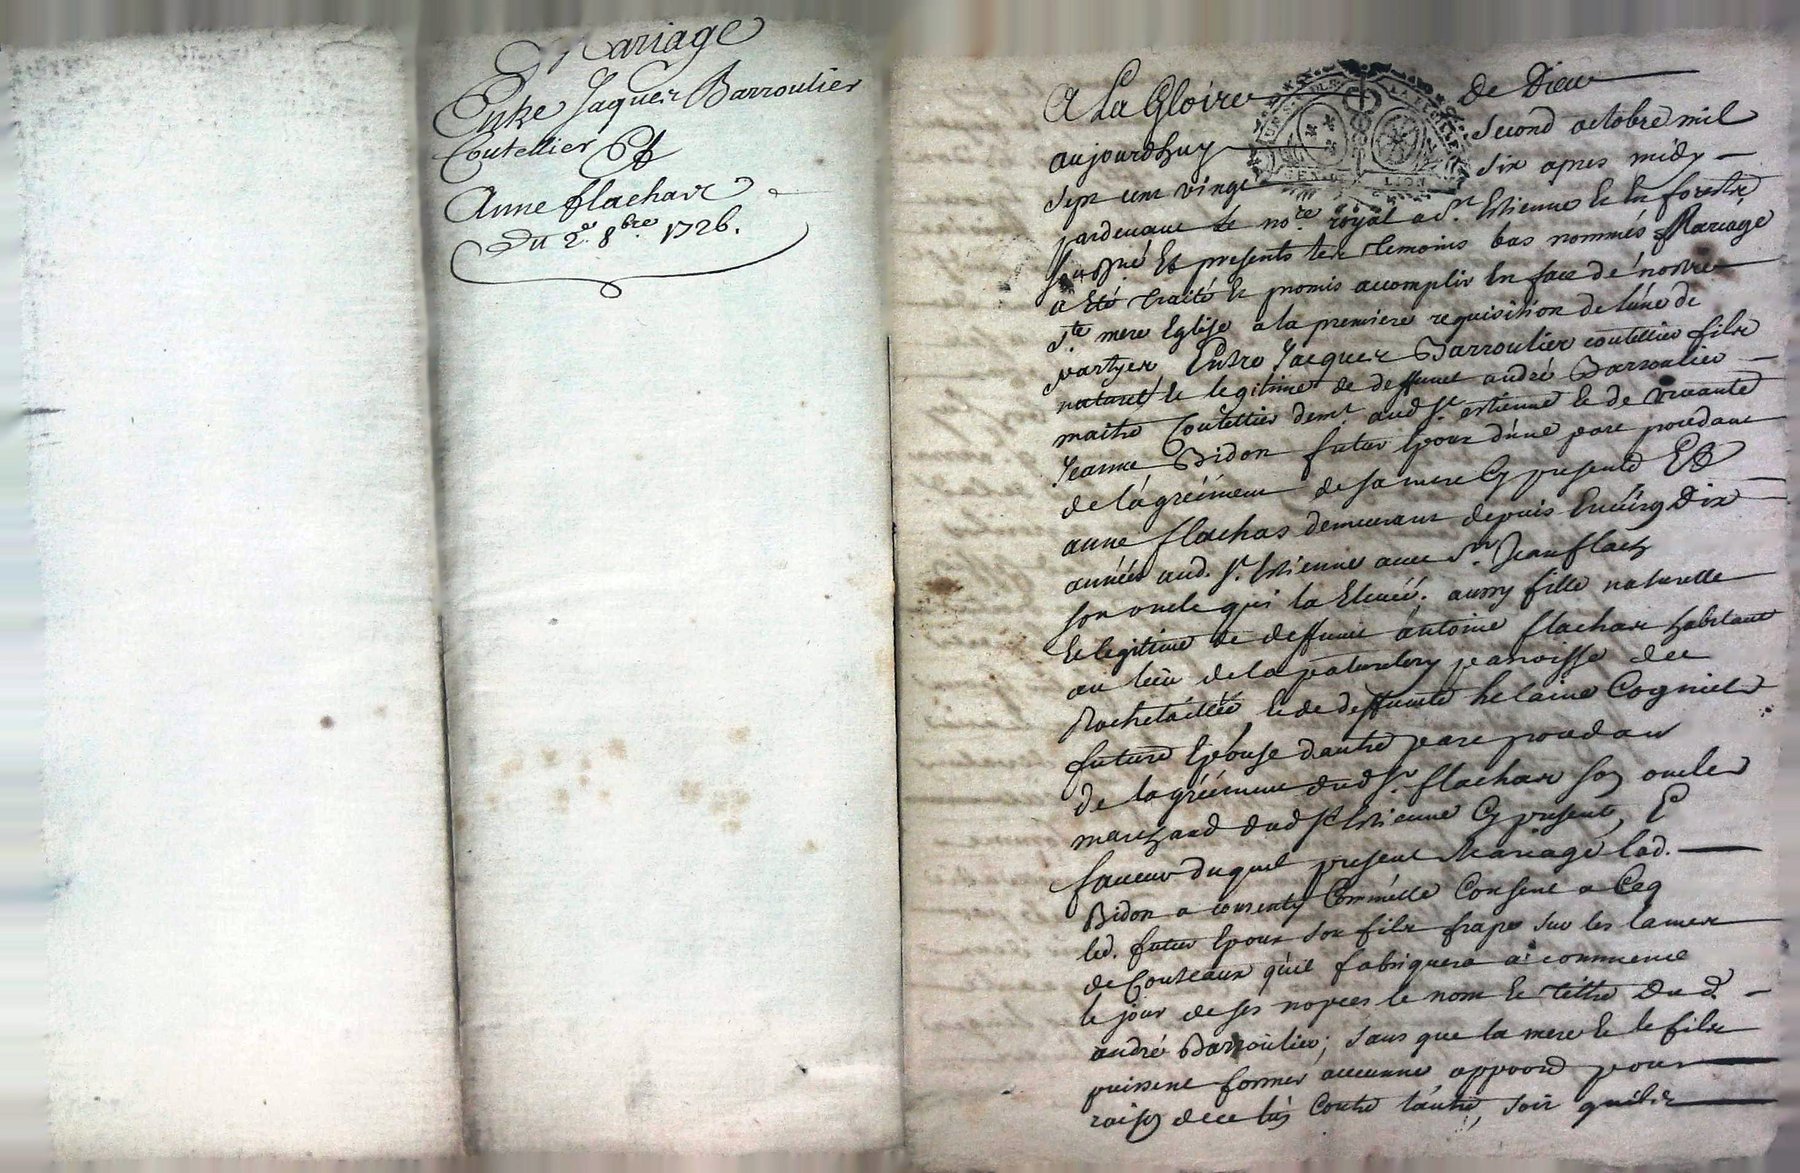 Mariage
Entre Jaques Barroulier
Coutellier Et
Anne flachas
Du 2e 8bre 1726.
A La Gloire de Dieu
aujourdhuy second octobre mil
sept cent vingt six apres midy
pardevant le nore royal a St. Estienne En forestz
soussigné Et presents les temoins bas nommés Mariage
a Eté traité et promis accomplir En face de nostre
Ste mere Eglise a la premiere requisition de lune des
partyes Entre Jacques Barroulier coutellier fils
naturel et legitime de deffunct andré Barroulier
maitre Coutellier demt. aud St. estienne et de vivante
Jeanne Bidon futur Epoux dune part procedant
de lagréement de sa mere Cy presente Et
anne flachas demeurant depuis Environ Dix
années aud. St. Estienne avec Sr. Jean flach
son oncle qui la Elevée. aussy fille naturelle
et legitime de deffunt antoine flachas habitant
au lieu de la paroisse de
Rochetaillée et de deffunte helaine Cogniet
future Epouse dautre part procedant
de lagréement dud Sr. flachas son oncle
marchand dud St Estienne Cy present, E
faveur duquel present Mariage lad.
Bidon a consenty Comme Elle Consent a Ceq
led. futur Epoux son fils frape sur les lames
de Couteaux quil fabriquera a commence
le jour de ses nopces le nom et tiltre Dud.
andré Barroulier; sans que la mere et le fils
puissent former aucune pour
raison de ce lun Contre lautre, soit quils